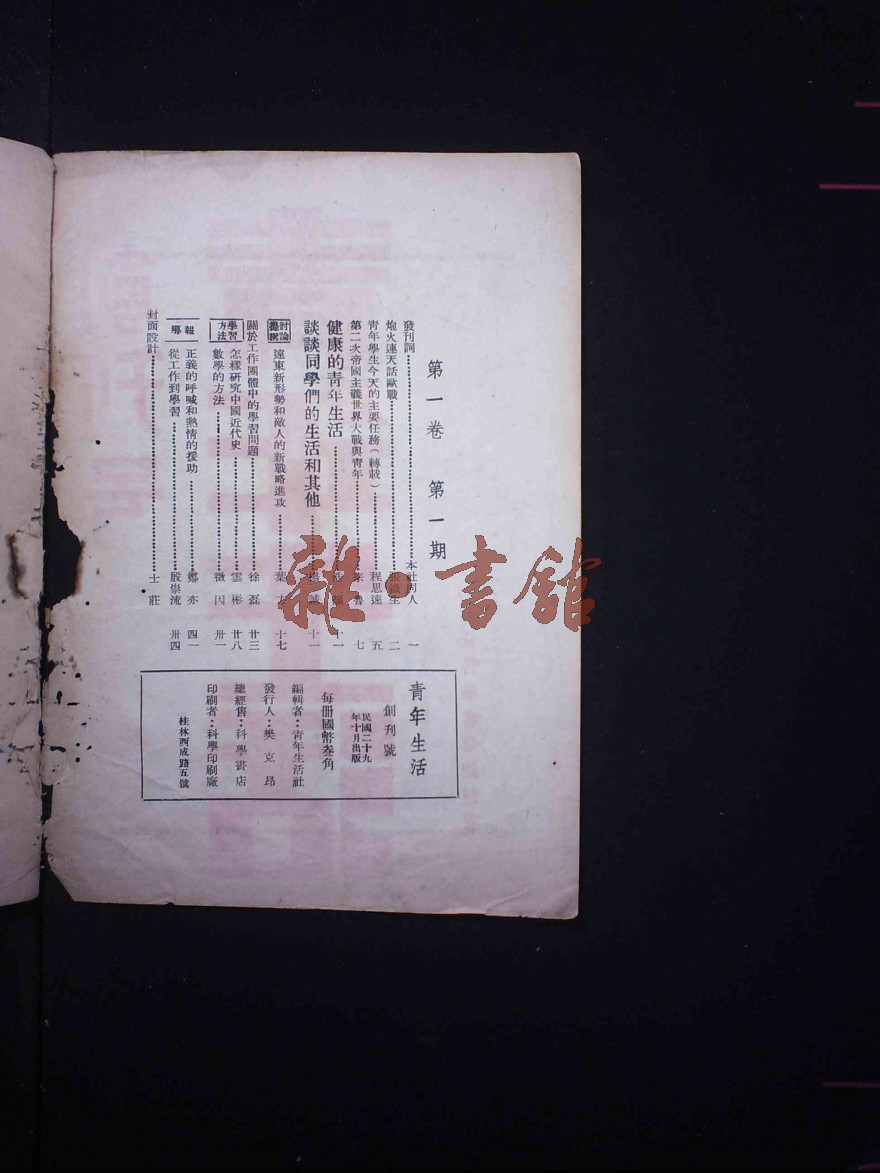 第一卷 第一期
發刊詞 本社同人 一
炮火連天話歐戰 張鐵生 二
青年學生今天的主要任務(轉載) 程思遠 五
第二次帝國主義世界大戰與青年 魯 七
健康的青年生活 十一
談談同學們的生活和其他 十一
討論提撰 遠東新形勢和敵人的新戰略進攻 葉 十七
關於工作團體中的學習問題 徐磊 廿三
學習方法 怎樣研究中國近代史 雲彬 廿八
數學的方法 微因 卅一
報 正義的呼喊和熱情的援助 鄭亦 四一
從工作到學習 殷崇流 卅四
封面設計 士莊
青年生活
創刊號
民國二十九
年十月出版
每册國幣叁角
編輯者:青年生活社
發行人:樊克昂
總經售:科學書店
印刷者:科學印刷廠
桂林西成路五號
雜·書館